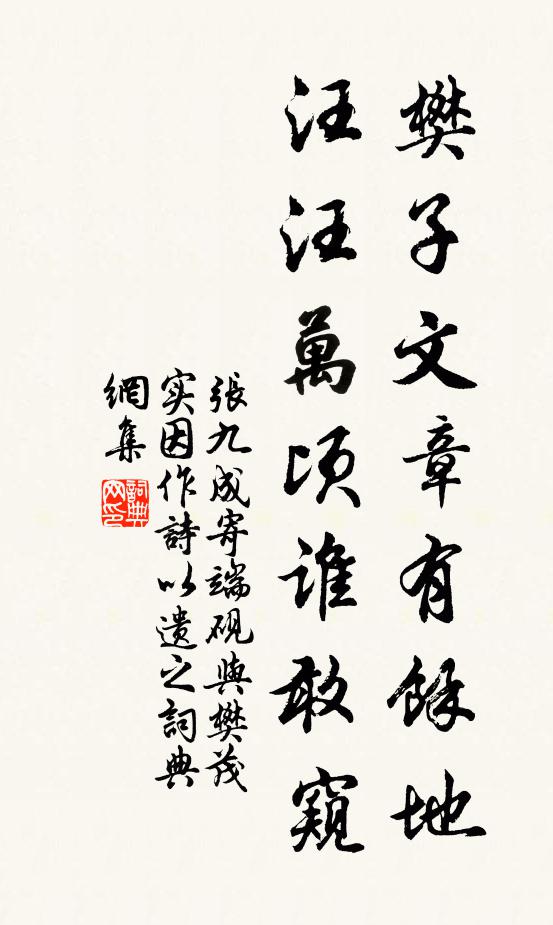 樊子文章有餘地
汪汪萬頃誰敢窺
張九成寄端砚與樊茂
实因作詩以遺之詞典
網集
詞典
网印